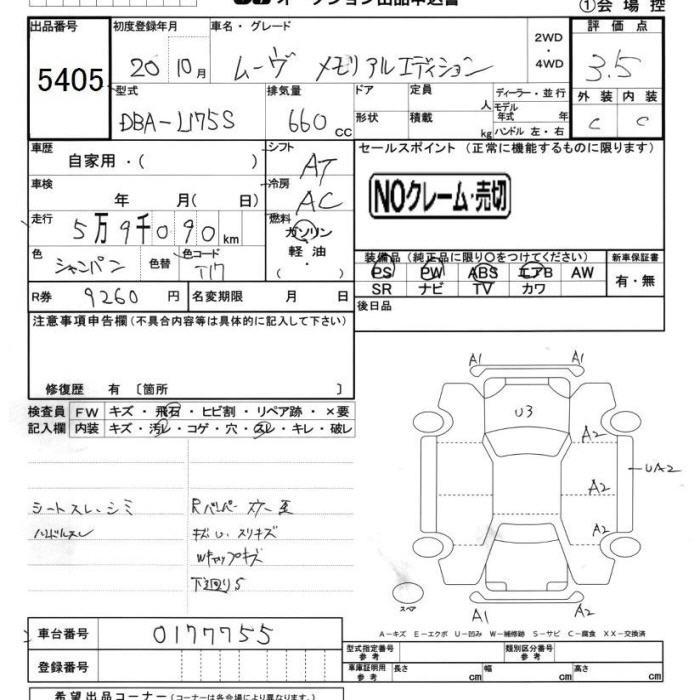 オークション出品申込書
①会場控
出品番号
5405
初度登録年月
20 10月
車名・グレード
ムーヴ メモリアルエディション
2WD
・
4WD
評価点
3.5
外装 内装
C C
型式
DBA-L175S
排気量
660 CC
ドア
形状
定員
人
積載
kg
ディーラー・並行
モデル年式 年
ハンドル 左・右
車歴
自家用・( )
シフト
AT
冷房
AC
セールスポイント (正常に機能するものに限ります)
NOクレーム・売切
車検
年 月( 日)
走行
5万9千090km
燃料
ガソリン
軽油
・( )
色
シャンパン
色替
色コード
T17
装備品(純正品に限り〇をつけてください)
PS PW ABS エアB AW
SR ナビ TV カワ
新車保証書
有・無
R券 9260円
名変期限 月 日
後日品
注意事項申告欄(不具合内容等は具体的に記入して下さい)
修復歴 有 〔箇所 〕
検査員
記入欄
FW キズ・飛石・ヒビ割・リペア跡・×要
内装 キズ・汚レ・コゲ・穴・スレ・キレ・破レ
シートスレ、シミ
ハンドルスレ
キズU、スリキズ
Wキャップキズ
下廻りS
A1
A1
U3
A2
A2
A2
UA2
A1
A2
スペア
A-キズ E-エクボ U-凹み W-補修跡 S-サビ C-腐食 XX-交換済
車台番号
0177755
登録番号
型式指定番号
参考
類別区分番号
参考
車庫証明用
参考
長さ cm
幅 cm
高さ cm
希望出品コーナー(コーナーは各会場により異なります。)